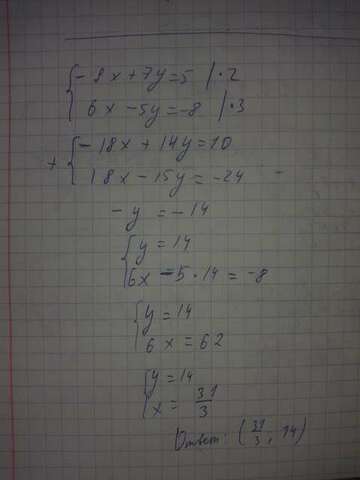 { -9x + 7y = 5 | · 2
6x - 5y = -8 | · 3
+ { -18x + 14y = 10
18x - 15y = -24
-y = -14
{ y = 14
6x - 5 · 14 = -8
{ y = 14
6x = 62
{ y = 14
x = 31/3
Ответ: (31/3; 14)